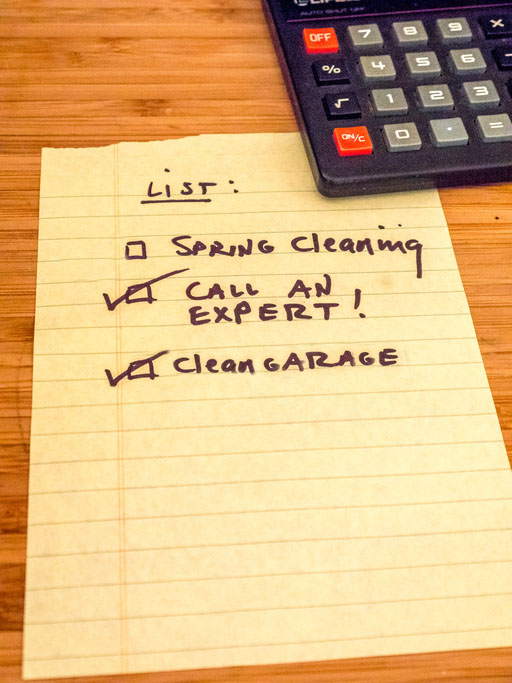 AUTO SHUT OFF
OFF 7 8 9 ×
% 4 5 6
√ 1 2 3
ON/C 0 · =
List:
SPRING Cleaning
CALL AN
EXPERT!
Clean GARAGE